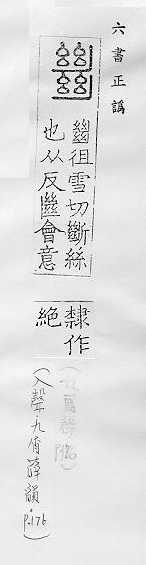 六書正譌
𢇍徂雪切斷絲
也从反㡭會意
隸作
絕
(入聲九屑薛韻 p.176)